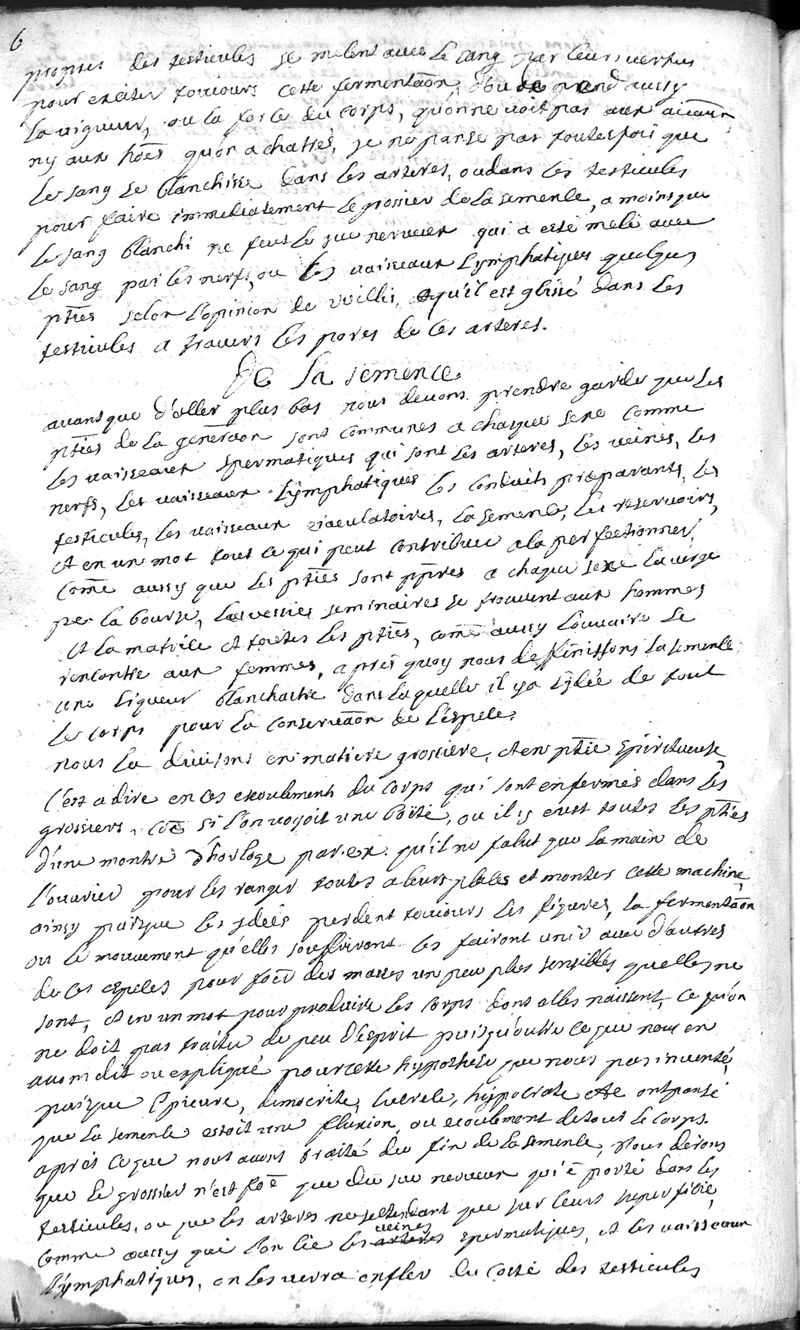 6
propres des testicules se melent avec le sang par leurs vertus
pour exciter toujours cette fermentaõn, d'ou depend aussy
la vigueur, ou la force du corps, qu'on ne voit pas aux
ny aux hões qu'on a chatrés, je ne panse pas toutesfois que
le sang se blanchisse dans les arteres, ou dans les testicules
pour faire immediatement le grossier de la semence, a moins que
le sang blanchi ne feut le suc nerveux qui a esté melé avec
le sang par les nerfs, ou les vaiseaux lymphatiques quelques
pties selon l'opinion de Willis, qu'il est glissé dans les
testicules a travers les pores de ces arteres.
De la semence
avant que d'aller plus bas nous devons prendre garde que les
pties de la generaõn sont communes a chaque sexe comme
les vaisseaux spermatiques qui sont les arteres, les veines, les
nerfs, les vaisseaux lymphatiques les conduits præparants, les
testicules, les vaisseaux ejaculatoires, la semence, les reservoirs,
et en un mot tout ce qui peut contribuer a la perfectionner,
come aussy que les pties sont ppres a chaque sexe la verge
par la bourse, les vessies seminaires se trouvent aux hommes
et la matrice et toutes les pties, come aussy l'ouvaire se
rencontre aux femmes, apres quoy nous deffinissons la semence
une liqueur blanchastre dans laquelle il y a l'idée de tout
le corps pour la conservaõn de l'espece.
nous la divisons en matiere grossiere, et en ptie spiritueuse
c'est a dire en ces ecoulements du corps qui sont enfermés dans les
grossiers, cõe si l'on voyoit une boëte, ou il y eust toutes les pties
d'une montre d'horloge par ex. qu'il ne falut que la main de
l'ouvrier pour les ranger toutes a leurs places et monter cette machine,
ainsy puisque les idées perdent toujours les figures, la fermentaõn
ou le mouvement qu'elles souffriront les fairont unir avec d'autres
de ces especes pour des masses un peu plus sensibles qu'elles ne
sont, et en un mot pour produire les corps dont elles naissent, ce qu'on
ne doit pas traiter de peu d'esprit puisqu'outre ce que nous en
avons dit ou expliqué pour cette hypothese que nous pas inventé,
puisque Epicure, democrite, lucrece, hypocrate etc ont pansé
que la semence estoit une fluxion, ou ecoulement de tout le corps.
apres ce que nous avons traité du fin de la semence, nous dirons
que le grossier n'est que du suc nerveux qui ẽ porté dans les
testicules, ou que les arteres ne se que sur leurs superficie,
comme aussy qui l'on lie les veines spermatiques, et les vaisseaux
lymphatiques, on les verra enfler du costé des testicules